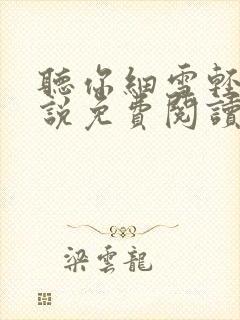 聽你細雪輕
說免費閱讀
梁雲龍